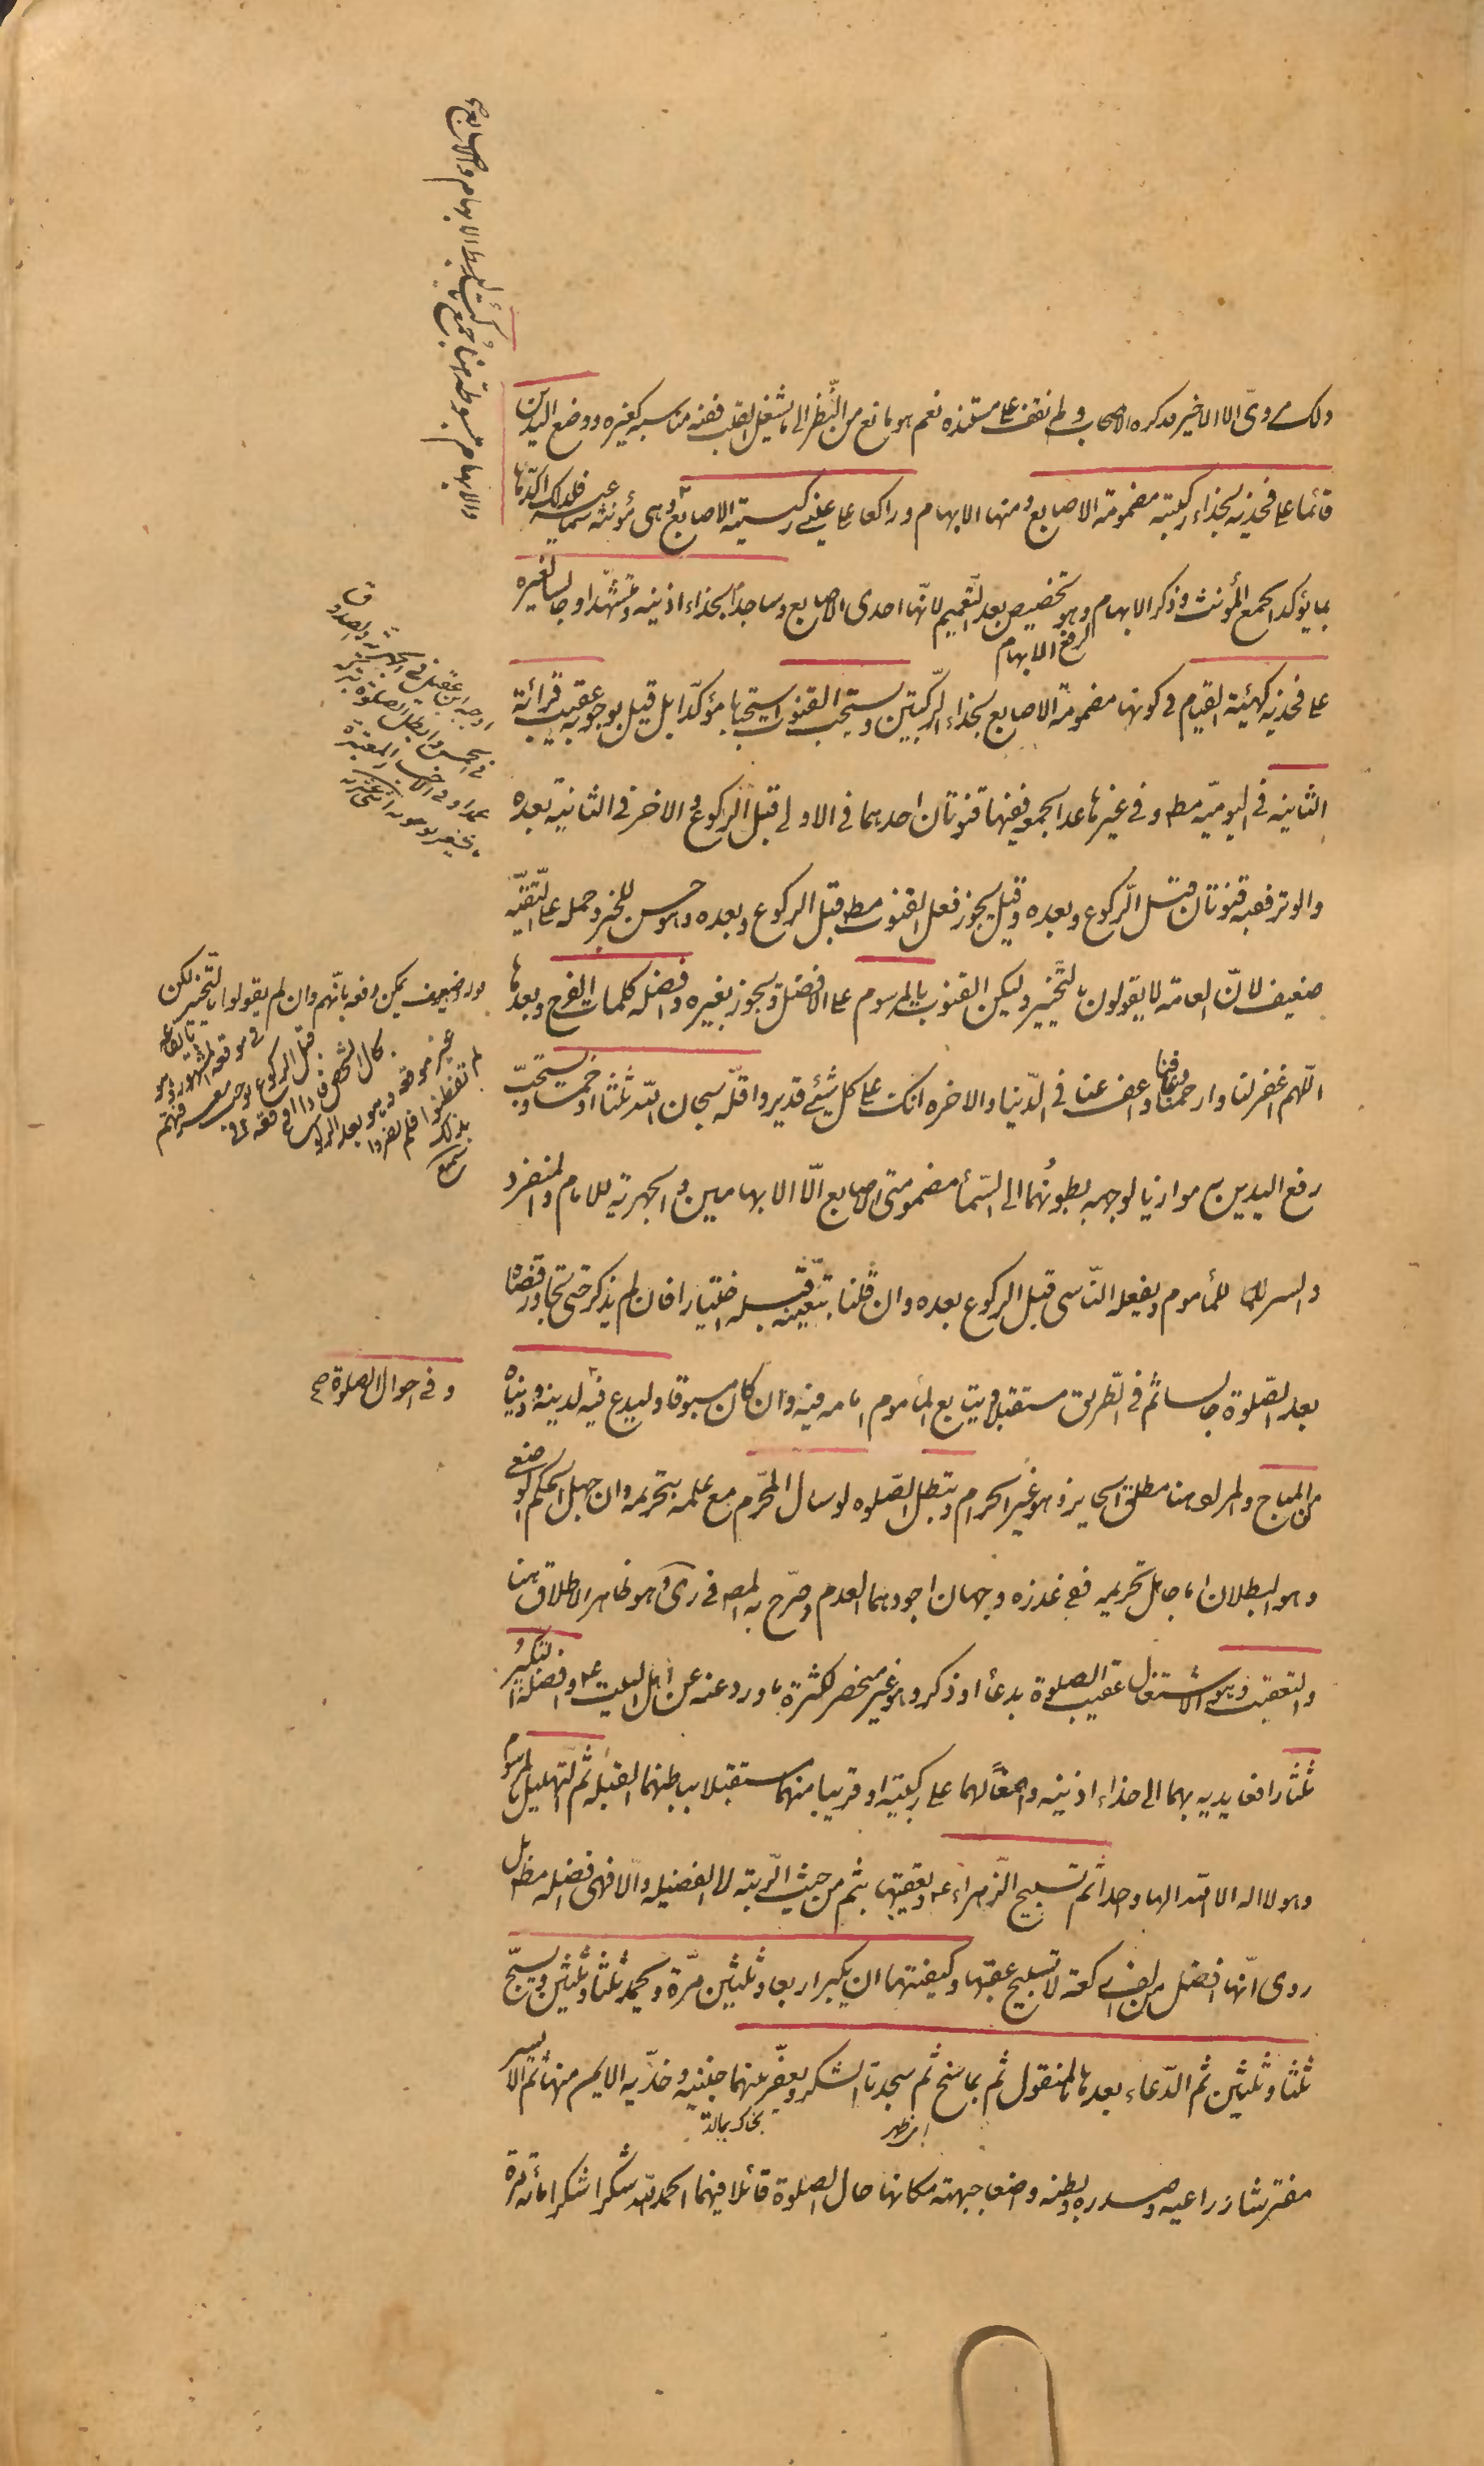 ذلك مروىّ الا الاخير فذكره الاصحاب ولم نقف على مستنده نعم هو مانع من النّظر الى ما يشغل القلب ففيه مناسبة كغيره ووضع اليدين
قائما على فخذيه بحذاء ركبتيه مضمومة الاصابع ومنها الابهام وراكعا على عينى ركبتيه الاصابع وهى مؤنثة سماعية فلذلك اكّدها
بما يؤكد الجمع المؤنث وذكر الابهام وهو تخصيص بعد التّعميم لانّها احدى الاصابع وساجداً بحذاء اذنيه ومتشهّدا وجالسا لغيره
لرفع الابهام
على فخذيه كهيئة القيام فى كونها مضمومة الاصابع بحذاء الرّكبتين ويستحب القنوت استحبابا مؤكّدا بل قيل بوجوبه عقيب قرائة
الثانيه فى اليوميّه مط وفى غيرها عدا الجمعه ففيها قنوتان احدهما فى الاولى قبل الركوع والاخر فى الثانية بعده
والوتر ففيه قنوتان قبل الرّكوع وبعده وقيل يجوز فعل القنوت مط قبل الركوع وبعده وهو حسن للخبر وحمله على التّقيّه
ضعيف لانّ العامّه لا يقولون بالتّخيير وليكن القنوت بالمرسوم على الافضل ويجوز بغيره وافضله كلمات الفرج وبعدها
اللّهم اغفر لنا وارحمنا وعافنا واعف عنا فى الدّنيا والاخره انّك على كل شئ قدير واقلّه سبحان اللّه ثلثا او خمسا ويستحبّ
رفع اليدين به موازيا لوجهه بطونهما الى السّماء مضمومتى الاصابع الّا الابهامين والجهر به للامام والمنفرد
والسر للماموم ويفعله النّاسى قبل الركوع بعده وان قلنا بتعيّنه قبله اختيارا فان لم يذكر حتى تجاوز قضاه
بعد الصّلوة جالسا ثم فى الطّريق مستقبلا ويتابع المأموم امامه فيه وان كان مسبوقا وليدع فيه لدينه ودنياه
من المباح والمراد هنا مطلق الجايز وهو غير الحرام وتبطل الصّلوه لو سال المحرّم مع علمه بتحريمه وان جهل الحكم الوضعى
وهو البطلان اما جاهل تحريمه ففى عذره وجهان اجودهما العدم وصرّح به المص فى كرى وهو ظاهر الاطلاق هنا
والتعقيب وهو الاشتغال عقيب الصلوة بدعاء او ذكر وهو غير منحصر لكثرة ما ورد عنه عن اهل البيت ع وافضله التكبير
ثلثا رافعا يديه بهما الى حذاء اذنيه واضعاً لهما على ركبتيه او قريبا منهما مستقبلا بباطنهما القبله ثم التهليل المرسوم
وهو لا اله الا اللّه الها واحدا ثم تسبيح الزّهراء ع وتعقيبها بثم من حيث الرّتبه لا الفضيله والّا فهى افضله مط بل
روى انّها افضل من الف ركعة لا تسبيح عقبها وكيفيتها ان يكبر اربعا وثلثين مرّة ويحمد ثلثا وثلثين ويسبّح
ثلثا وثلثين ثم الدّعاء بعدها بالمنقول ثم بما سنح ثم سجدتا الشكر ويعفّر بينهما جبينيه وخدّيه الايمن منهما ثم الايسر
مفترشا ذراعيه وصدره وبطنه واضعا جبهته مكانها حال الصلوة قائلا فيهما الحمد للّه شكرا شكرا مائة مرة
اوجبه ابن ابى عقيل فى الجهرية والصدوق
فى الخمس وابطل الصلوة بتركه
عمدا وفى الاخبار المعتبرة
وهو ضعيف يمكن دفعه بانّهم وان لم يقولوا بالتّخيير لكن
وفى احوال الصلوة صح